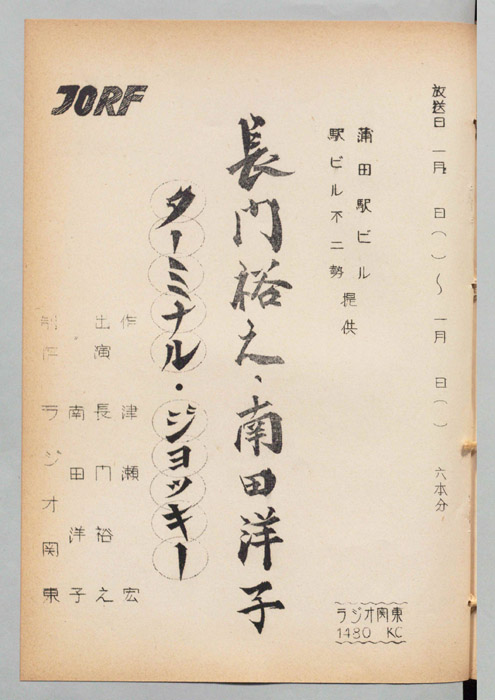 放送日 一月 日( )~ 一月 日( ) 六本分
蒲田駅ビル
駅ビル不二勢 提供
長門裕之、南田洋子
ターミナル・ジョッキー
JORF
作 津瀬 宏
出演 長門裕之
南田洋子
制作 ラジオ関東
ラジオ関東
1480 KC